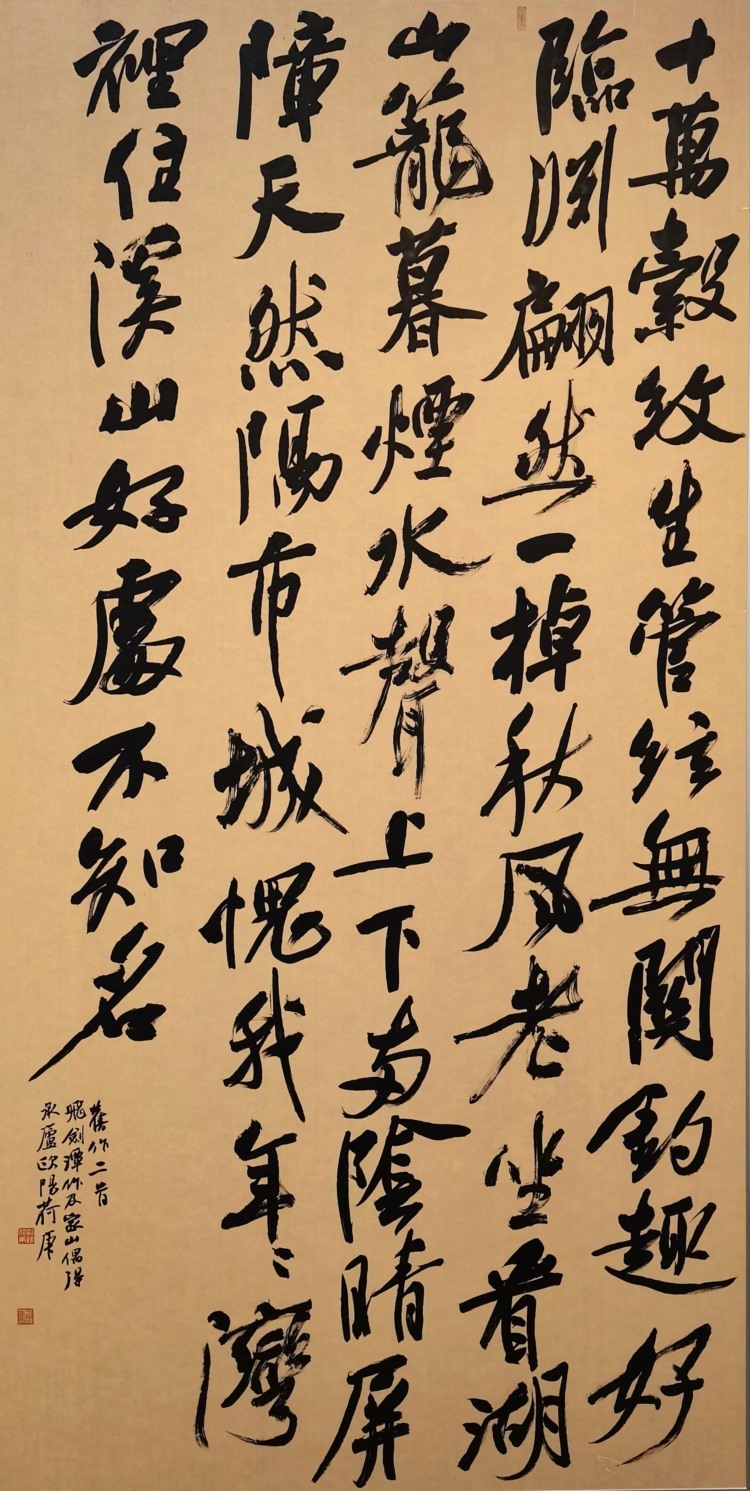 十萬縠紋生管絃無關釣趣好
臨渊翩然一棹秋风老坐看湖
山籠暮煙水聲上下雨陰晴屏
障天然隔市城愧我年〻灣
裡住溪山好處不知名
舊作二首
飛劍潭作及家山偶得
承廬歐陽荷庚